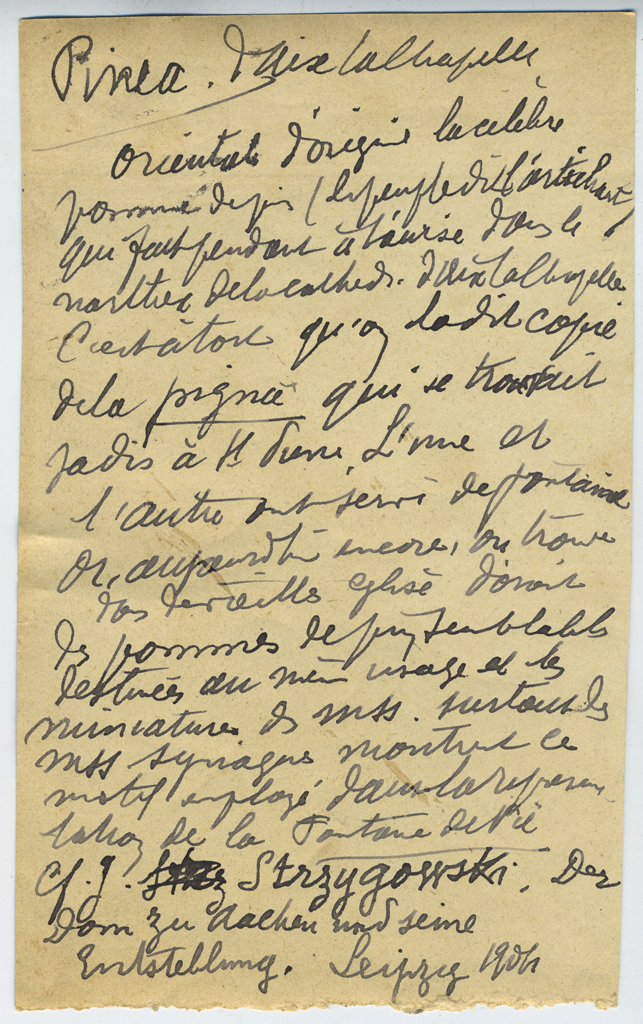 Pinea. d'Aix la Chapelle
Orientale d'origine la célèbre
pomme de pin (le peuple dit l'artichaut)
qui fait pendant à l'ourse dans le
narthex de la cathed. d'Aix la Chapelle
C'est à tort qu'on la dit copie
de la pigna qui se trouvait
jadis à St Pierre, L'une et
l'autre ont servi de fontaine
Or, aujourd'hui encore, on trouve
des vieilles église d'orient
des pommes de pin semblables
destinées au même usage et les
miniatures des mss. surtout des
mss syriaques montrent ce
motif employé dans la représen
tation de la Fontaine de Vie
Cf. J. Strzygowski, Der
Dom zu Aachen und seine
Entstellung. Leipzig 1904